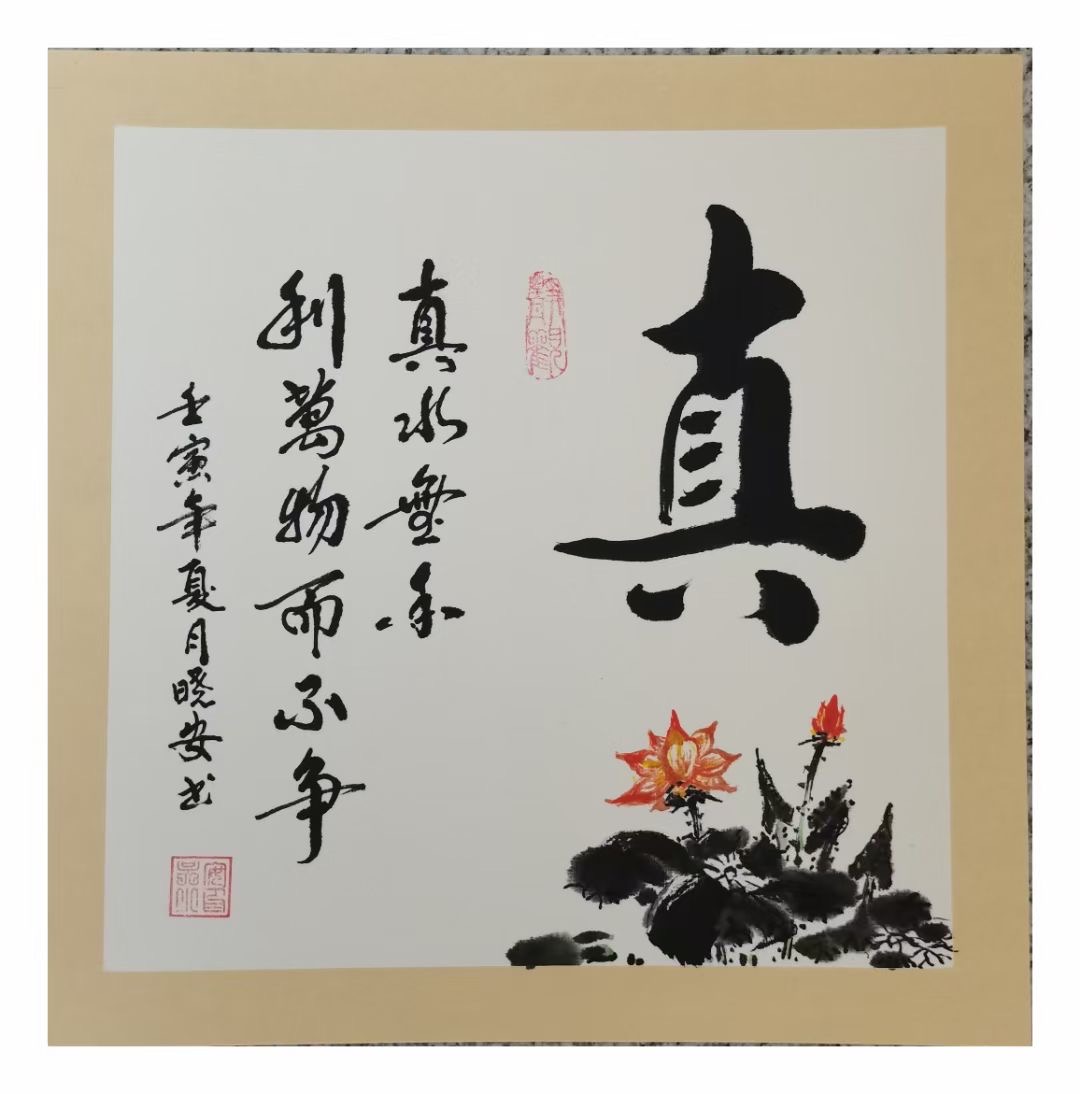 真
真水無香
利萬物而不争
壬寅年夏月晓安书